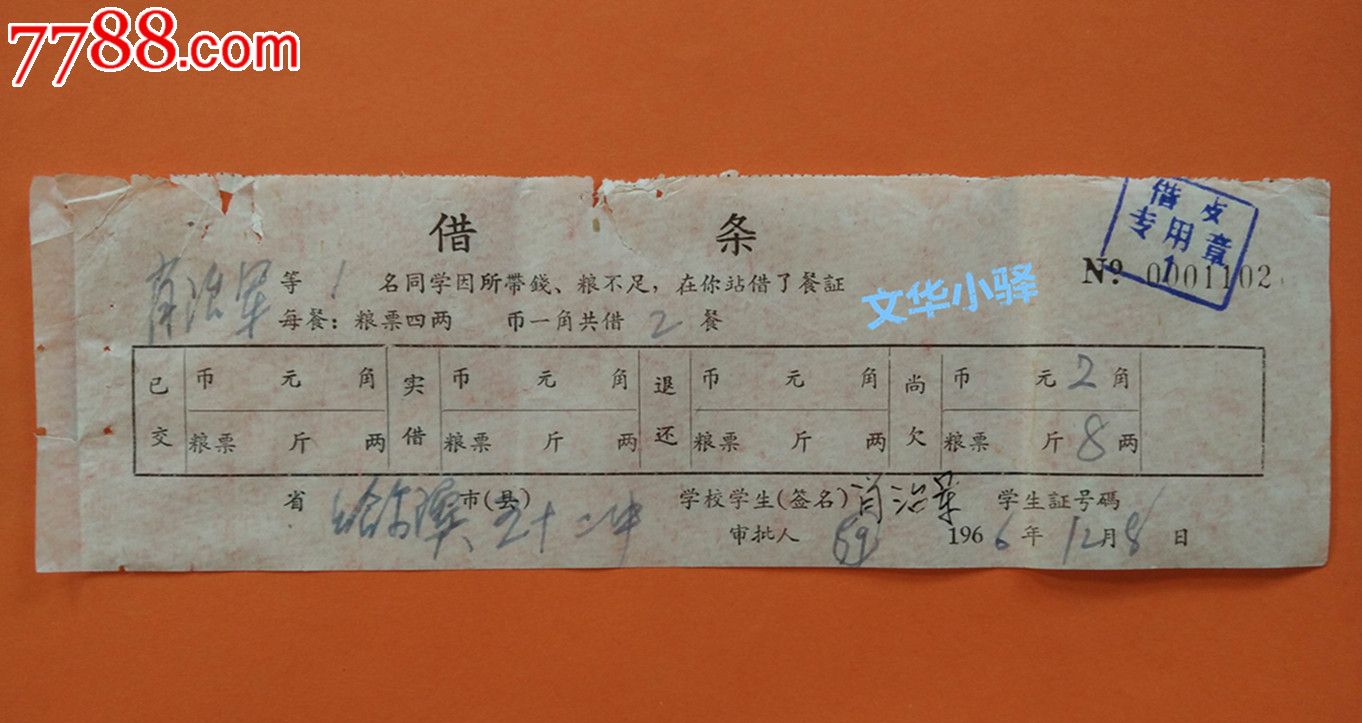 7788.com
借条
借支
专用章
1
No. 0001102
肖治军等1名同学因所带錢、粮不足，在你站借了餐証
文华小驿
每餐：粮票四两 币一角共借2餐
已交 币 元 角 实借 币 元 角 退还 币 元 角 尚欠 币 元2角
粮票 斤 两 粮票 斤 两 粮票 斤 两 粮票 斤8两
省哈尔滨市(县)五十二中学校学生(签名)肖治军 学生証号碼
审批人 1966年12月8日